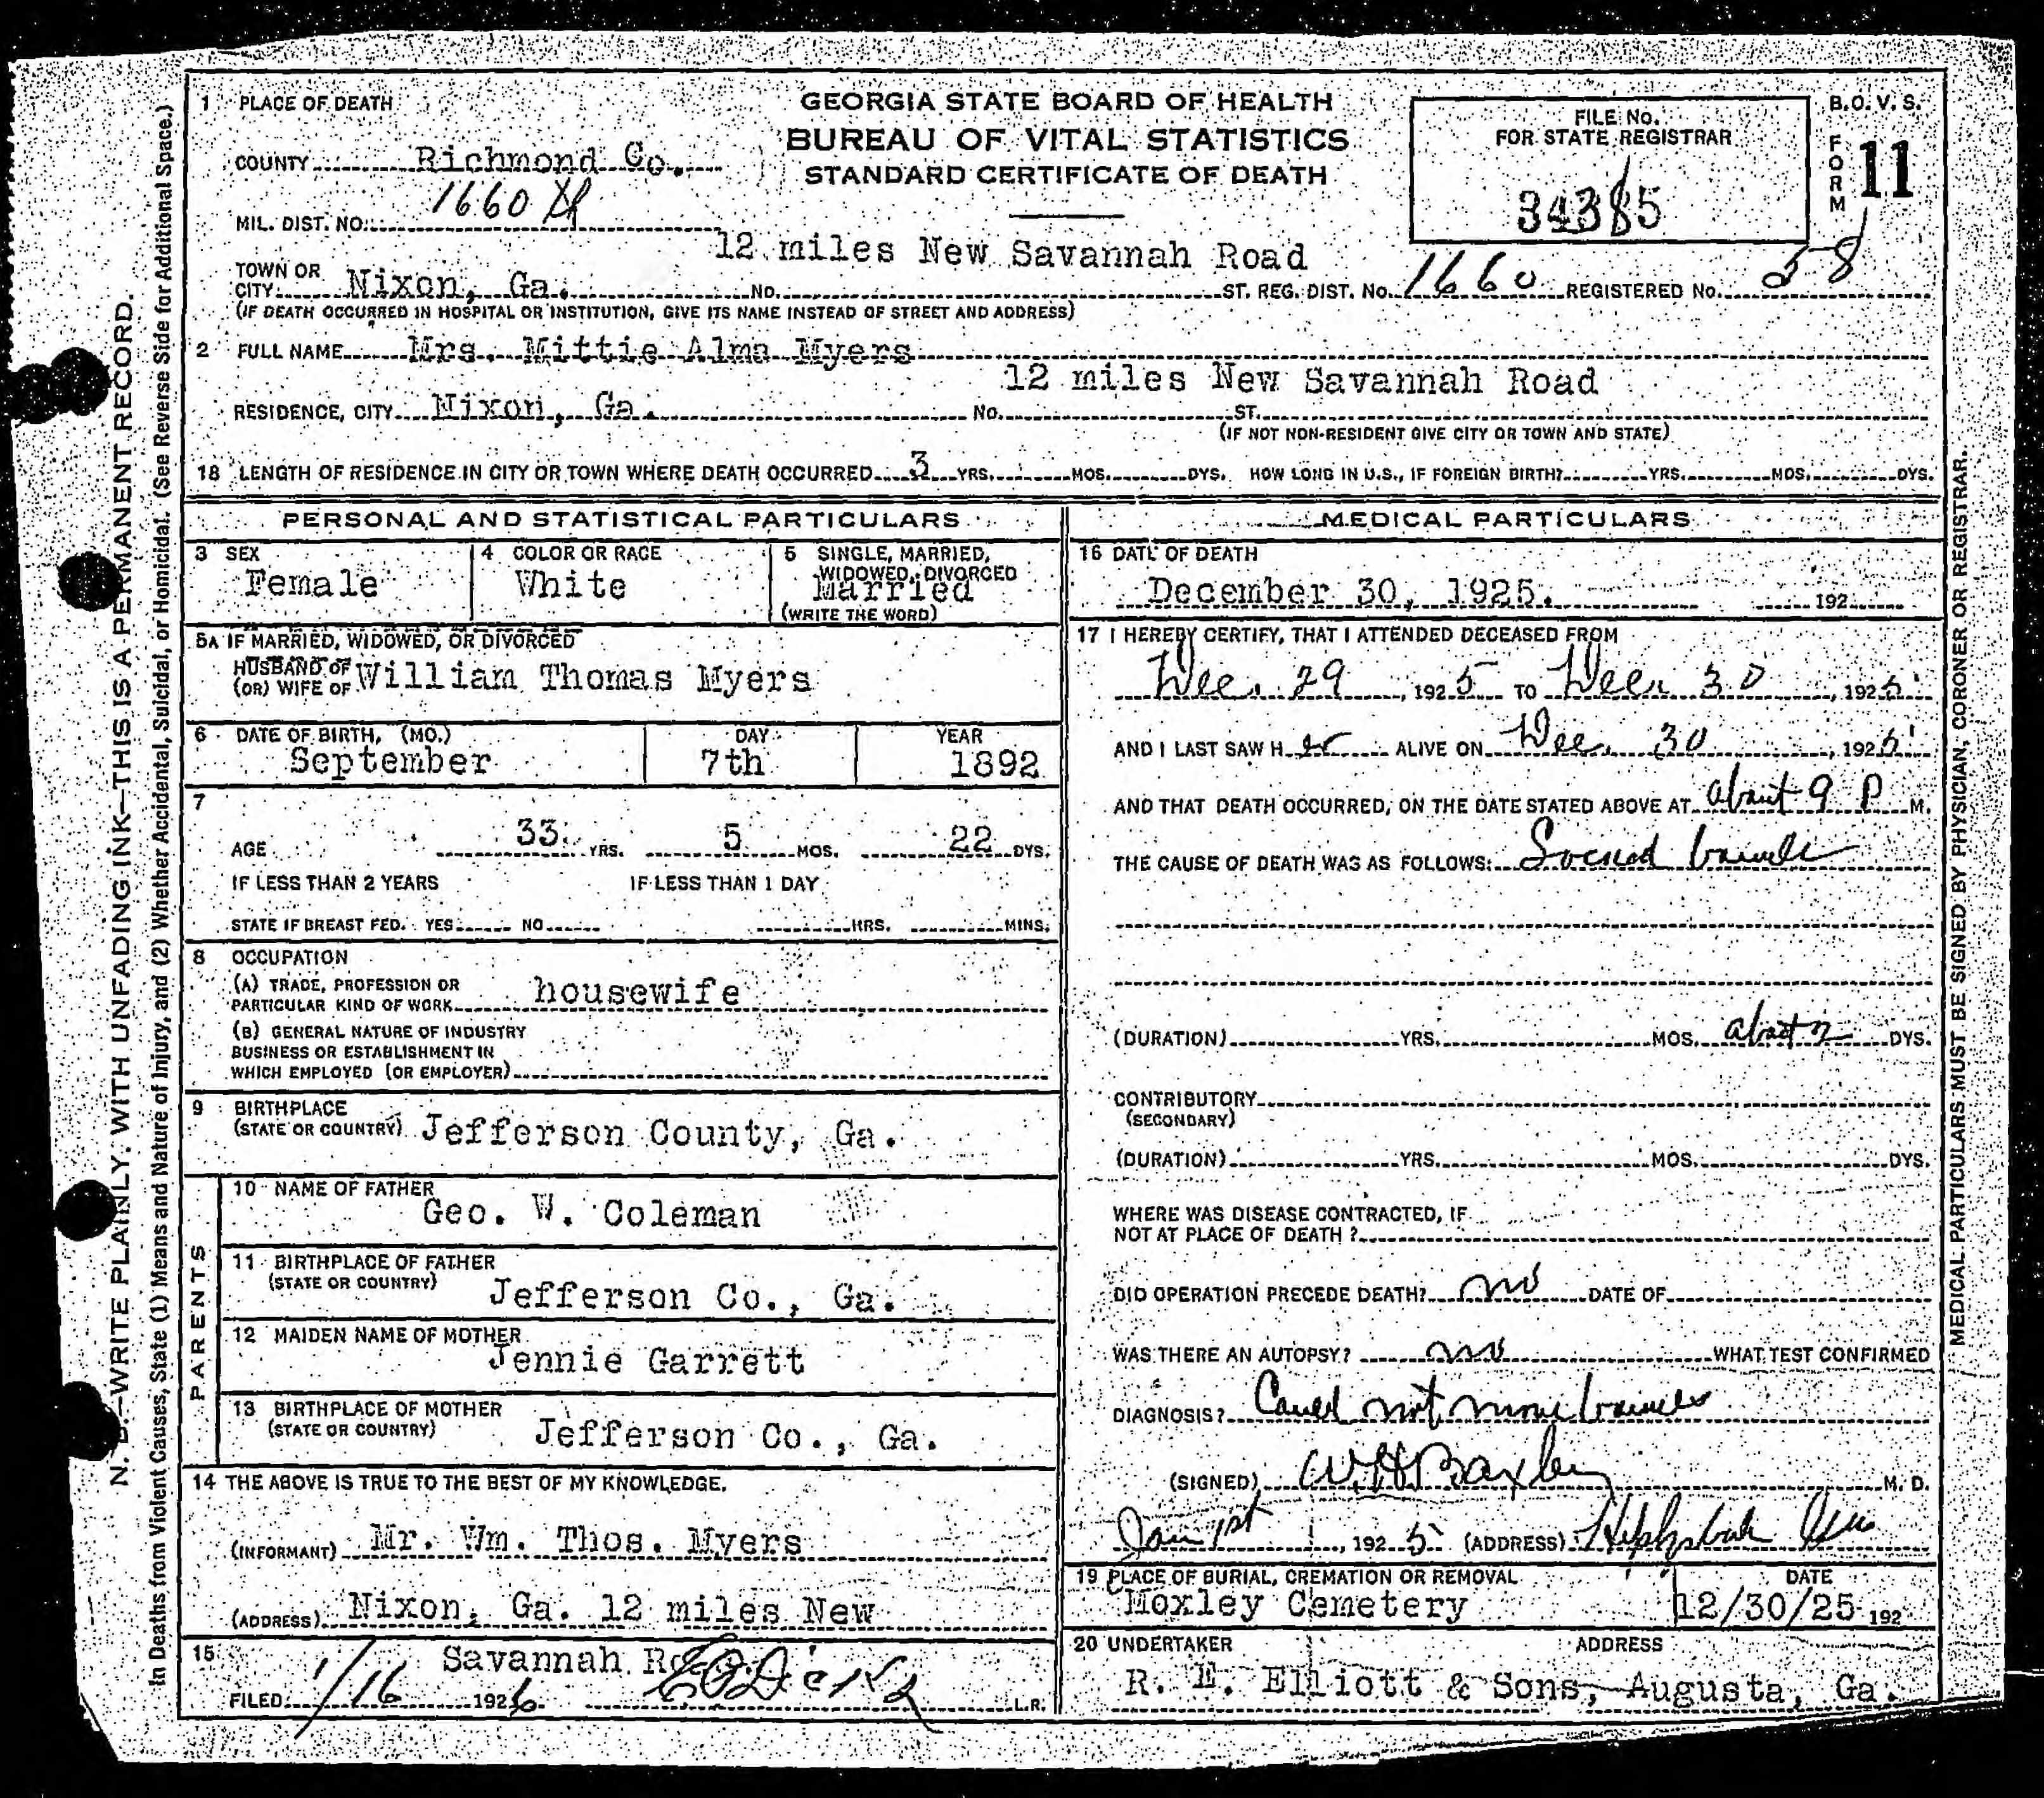 1 PLACE OF DEATH
GEORGIA STATE BOARD OF HEALTH
BUREAU OF VITAL STATISTICS
STANDARD CERTIFICATE OF DEATH
FILE No.
FOR STATE REGISTRAR
34385
B.O.V.S.
FORM 11
COUNTY Richmond Co.
MIL. DIST. NO. 1660
12 miles New Savannah Road
TOWN OR CITY Nixon, Ga. No. ST. REG. DIST. No. 1660 REGISTERED No. 58
(IF DEATH OCCURRED IN HOSPITAL OR INSTITUTION, GIVE ITS NAME INSTEAD OF STREET AND ADDRESS)
2 FULL NAME Mrs. Mittie Alma Myers
12 miles New Savannah Road
RESIDENCE, CITY Nixon, Ga. No. ST.
(IF NOT NON-RESIDENT GIVE CITY OR TOWN AND STATE)
18 LENGTH OF RESIDENCE IN CITY OR TOWN WHERE DEATH OCCURRED 3 YRS. MOS. DYS. HOW LONG IN U.S., IF FOREIGN BIRTH? YRS. MOS. DYS.
PERSONAL AND STATISTICAL PARTICULARS
3 SEX
Female
4 COLOR OR RACE
White
5 SINGLE, MARRIED,
WIDOWED, DIVORCED
Married
(WRITE THE WORD)
5A IF MARRIED, WIDOWED, OR DIVORCED
HUSBAND OF
(OR) WIFE OF William Thomas Myers
6 DATE OF BIRTH, (MO.) DAY YEAR
September 7th 1892
7
AGE 33 YRS. 5 MOS. 22 DYS.
IF LESS THAN 2 YEARS IF LESS THAN 1 DAY
STATE IF BREAST FED. YES NO HRS. MINS.
8 OCCUPATION
(A) TRADE, PROFESSION OR
PARTICULAR KIND OF WORK housewife
(B) GENERAL NATURE OF INDUSTRY
BUSINESS OR ESTABLISHMENT IN
WHICH EMPLOYED (OR EMPLOYER)
9 BIRTHPLACE
(STATE OR COUNTRY) Jefferson County, Ga.
PARENTS
10 NAME OF FATHER
Geo. W. Coleman
11 BIRTHPLACE OF FATHER
(STATE OR COUNTRY) Jefferson Co., Ga.
12 MAIDEN NAME OF MOTHER
Jennie Garrett
13 BIRTHPLACE OF MOTHER
(STATE OR COUNTRY) Jefferson Co., Ga.
14 THE ABOVE IS TRUE TO THE BEST OF MY KNOWLEDGE.
(INFORMANT) Mr. Wm. Thos. Myers
(ADDRESS) Nixon, Ga. 12 miles New
15 Savannah
FILED 1/16 1926 L.R.
MEDICAL PARTICULARS
16 DATE OF DEATH
December 30, 1925. 192
17 I HEREBY CERTIFY, THAT I ATTENDED DECEASED FROM
Dec. 29, 1925 TO Dec. 30, 1925
AND I LAST SAW H er ALIVE ON Dec. 30, 1925
AND THAT DEATH OCCURRED, ON THE DATE STATED ABOVE AT about 9 P M.
THE CAUSE OF DEATH WAS AS FOLLOWS:
(DURATION) YRS. MOS. about 2 DYS.
CONTRIBUTORY
(SECONDARY)
(DURATION) YRS. MOS. DYS.
WHERE WAS DISEASE CONTRACTED, IF
NOT AT PLACE OF DEATH ?
DID OPERATION PRECEDE DEATH? no DATE OF
WAS THERE AN AUTOPSY? no WHAT TEST CONFIRMED
DIAGNOSIS? Could not move bowels
(SIGNED) W.H. Baxley M. D.
Jan 1st, 1925 (ADDRESS)
19 PLACE OF BURIAL, CREMATION OR REMOVAL DATE
Moxley Cemetery 12/30/25 192
20 UNDERTAKER ADDRESS
R. E. Elliott & Sons, Augusta, Ga.
N. B.—WRITE PLAINLY, WITH UNFADING INK—THIS IS A PERMANENT RECORD.
In Deaths from Violent Causes, State (1) Means and Nature of Injury, and (2) Whether Accidental, Suicidal, or Homicidal. (See Reverse Side for Additional Space.)
MEDICAL PARTICULARS MUST BE SIGNED BY PHYSICIAN, CORONER OR REGISTRAR.